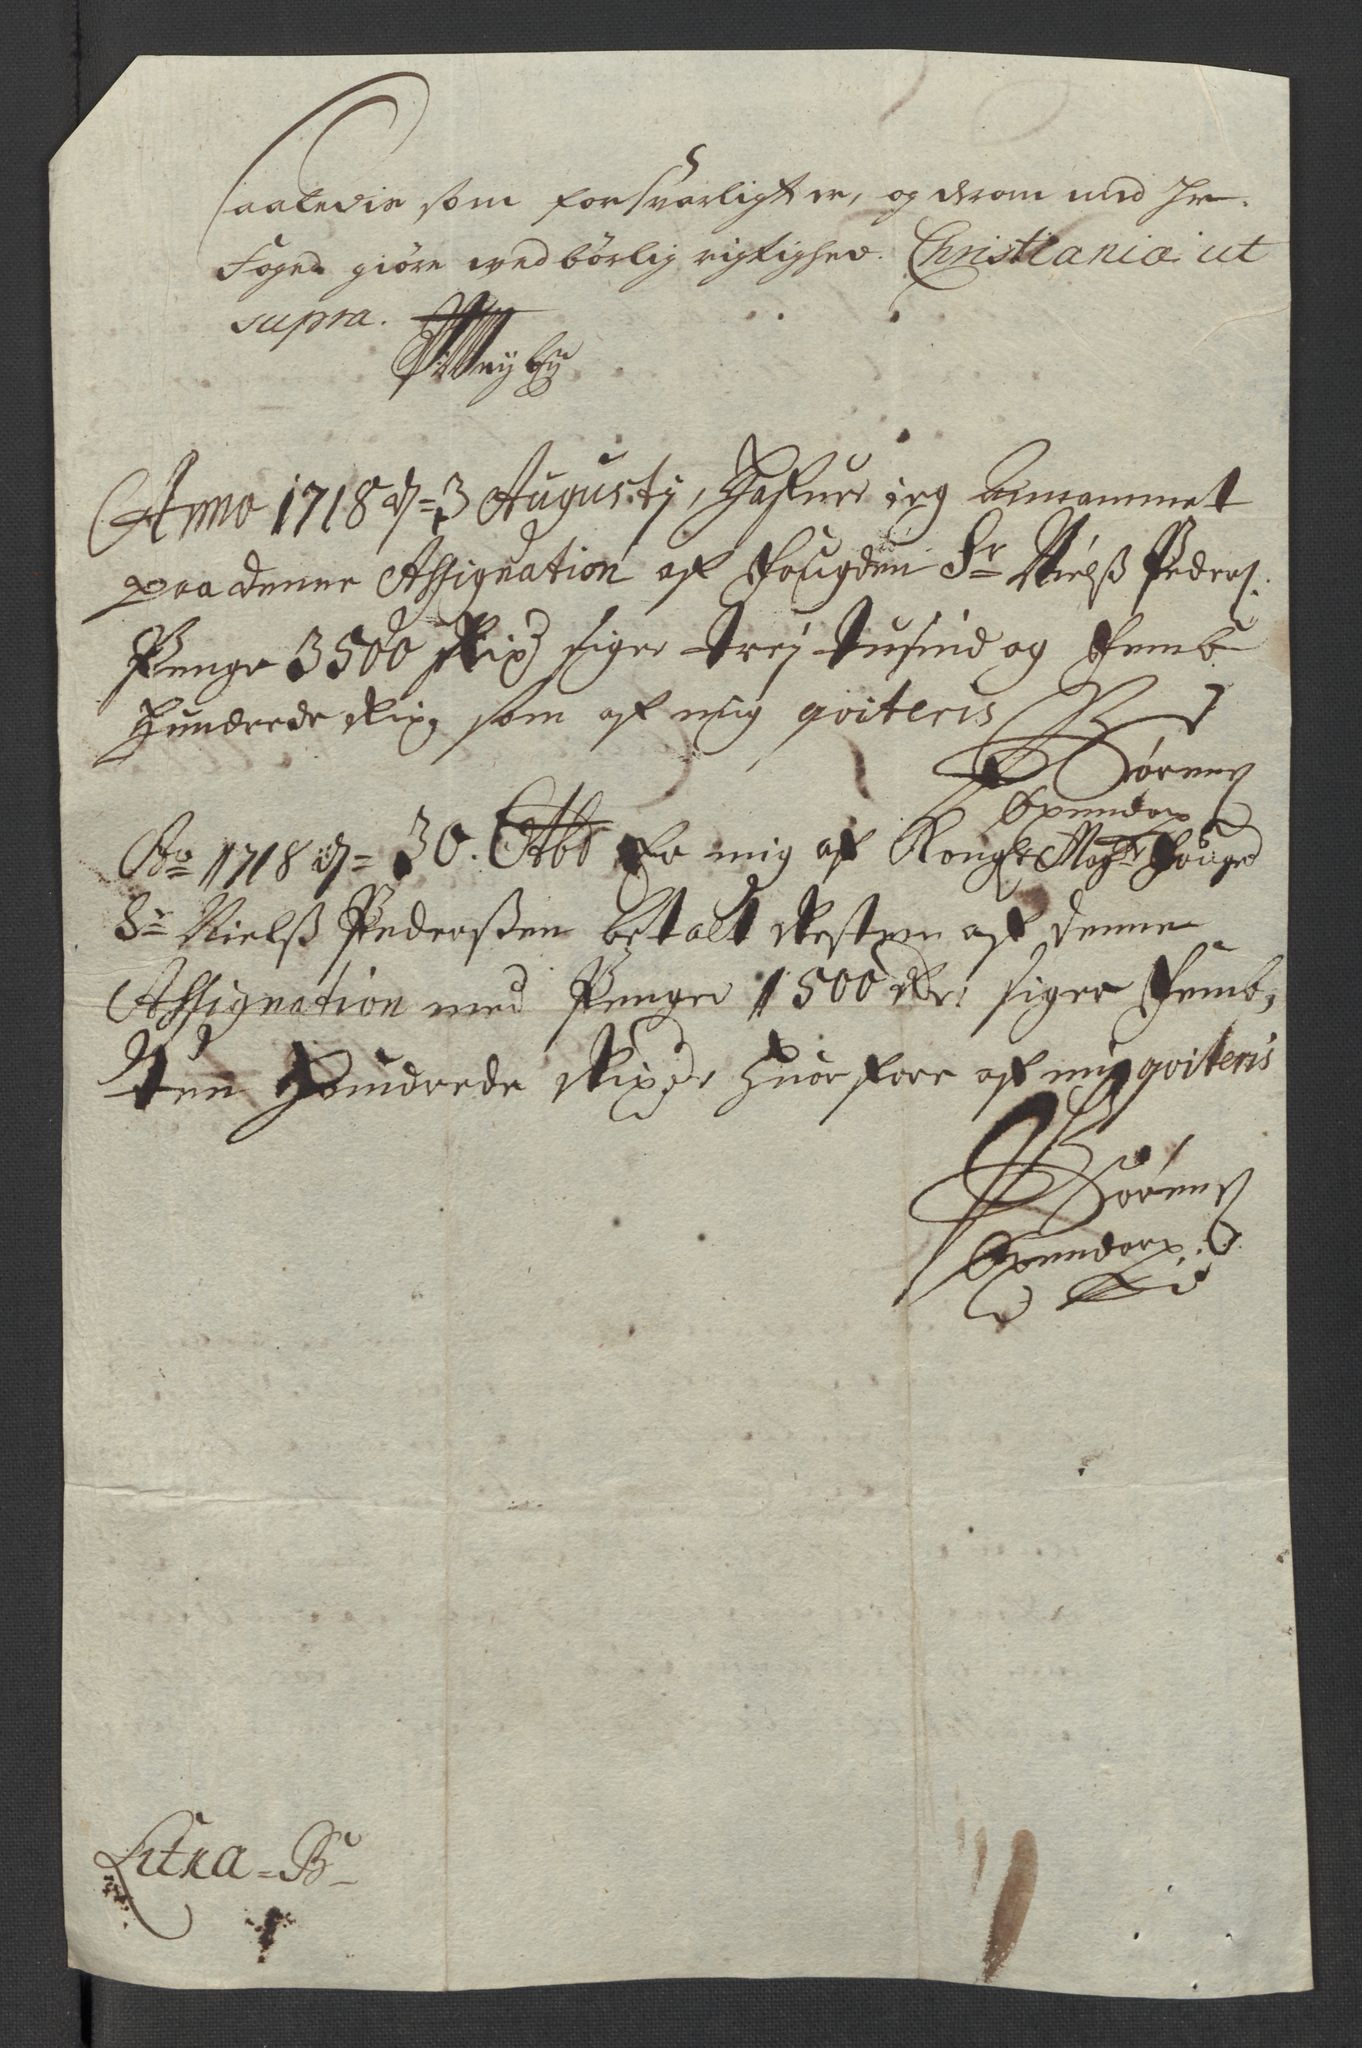 saaledis som forsvarligt er, og derom med Hr.
Foged giøre ved børlig rigtighed. Christiania ut
supra.
Anno 1718 d= 3 Augustij, Hafuer ieg Annammet
paa denne Assignation af Fougden Sr Nielß Peders.
Penge 3500 Rixd siger trej tusind og Femb
Hundrede Rixd, som af mig qviteris
Sørens
Opendorp
Ao 1718 d= 30. Octbr Er mig af Kongl: Mayts Fouged
Sr Nielß Pederßen betalt Resten af denne
Assignation med Penge 1500 Rdr siger Femb,
ten Hundrede Rixdr Huorfore af mig qviteris
Sørens
Opendorp
Litra = B